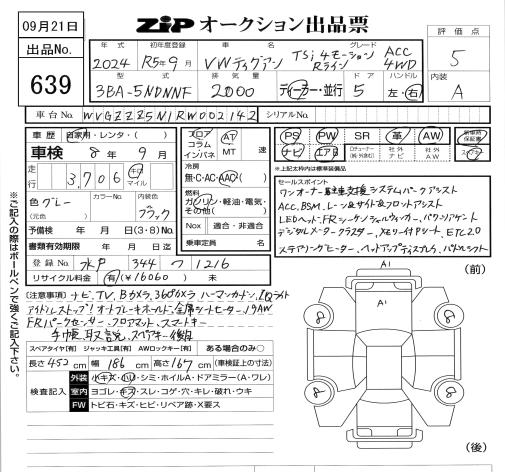 09月21日
ZIP オークション出品票
出品No.
639
年式 初年度登録 車名 グレード
2024 R5年9月 VWティグアン TSi 4モーション Rライン ACC 4WD
型式 排気量 ドア ハンドル
3BA-5NDNNF 2000 ディーラー・並行 5 左・右
評価点
5
内装
A
車台No. WVGZZZ5N1RW002142 シリアルNo.
車歴 自家用・レンタ・( )
車検 8年9月
走行 3,706 キロ マイル
色 グレー カラーNo. 内装色 ブラック
(元色)
予備検 年 月 日(3・8)No.
書類有効期限 年 月 日迄
登録No. 水戸 344 つ 1216
リサイクル料金 有(¥16060) 未
フロア コラム インパネ AT MT 速
冷房
無・C・AC・AAC
燃料
ガソリン・軽油・電気・その他( )
Nox 適合・非適合
乗車定員 名
PS PW SR 革 AW 新車時保証書
ナビ エアB 社外ナビ 社外AW
※上記太枠内は標準装備品
セールスポイント
ワンオーナー 駐車支援システムパークアシスト
ACC,BSM,レーンサイド&フロントアシスト
LEDヘット,FRシーケンシャルウィンカー,パワーリアゲート
デジタルメータークラスター,メモリー付Pシート,ETC2.0
ステアリングヒーター,ヘットアップディスプレイ,パドルシフト
[注意事項] ナビ,TV,Bカメラ,360°カメラ ハーマンカードン,IQライト
アイドルストップ!オートブレーキホールド,全席シートヒーター,19AW
FRパークセンサー,フロアマット,スマートキー
手帳,取説,スペアキー
スペアタイヤ[有] ジャッキ工具[有] AWロックキー[有] ある場合のみ○
長さ 452 cm 幅 186 cm 高さ 167 cm (車検証上の寸法)
検査記入
外装 小キズ・小凹・シミ・ホイルA・ドアミラー(A・ワレ)
室内 ヨゴレ・キズ・スレ・コゲ・穴・キレ・破れ・ウキ
FW トビ石・キズ・ヒビ・リペア跡・X要ス
(前)
A1
A1
8
8
8
8
(後)
※ご記入の際はボールペンで強くご記入下さい。